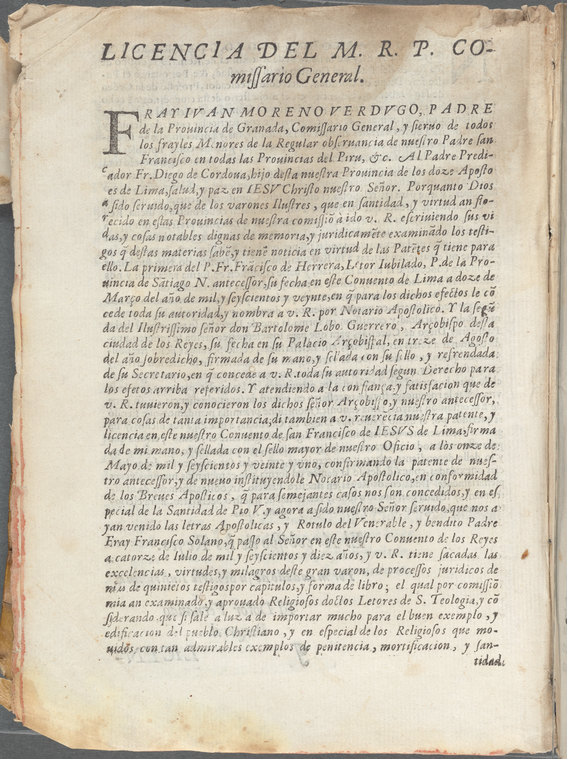 LICENCIA DEL M. R. P. CO-
miſſario General.
FRAY IVAN MORENO VERDVGO, PADRE
de la Prouincia de Granada, Comiſſario General, y ſieruo de todos
los frayles Menores de la Regular obſeruancia de nueſtro Padre ſan
Franciſco en todas las Prouincias del Piru, &c. Al Padre Predi-
cador Fr. Diego de Cordoua, hijo deſta nueſtra Prouincia de los doze Apoſto
es de Lima, ſalud, y paz en IESV Chriſto nueſtro Señor. Porquanto Dios
a ſido ſeruido, que de los varones Iluſtres, que en ſantidad, y virtud an flo-
recido en eſtas Prouincias de nueſtra comiſsiõ à ido v. R. eſcriuiendo ſus vi
das, y coſas notables dignas de memoria, y juridicamẽte examinãdo los teſti-
gos q̃ deſtas materias ſabẽ, y tienẽ noticia en virtud de las Patẽtes q̃ tiene para
ello. La primera del P. Fr. Frãciſco de Herrera, Letor Iubilado, P. de la Pro-
uincia de Sãtiago N. anteceſſor, ſu fecha en eſte Conuento de Lima a doze de
Março del año de mil, y ſeyſcientos y veynte, en q̃ para los dichos efectos le cõ
cede toda ſu autoridad, y nombra a v. R. por Notario Apoſtolico. Y la ſegũ
da del Iluſtriſsimo ſeñor don Bartolome Lobo Guerrero, Arçobiſpo deſta
ciudad de los Reyes, ſu fecha en ſu Palacio Arçobiſpal, en treze de Agoſto
del año ſobredicho, firmada de ſu mano, y ſellada con ſu ſello, y refrendada
de ſu Secretario, en q̃ concede a v. R. toda ſu autoridad ſegun Derecho para
los efetos arriba referidos. Y atendiendo a la confiança, y ſatisfacion que de
v. R. tuuieron, y conocieron los dichos ſeñor Arçobiſpo, y nueſtro anteceſſor,
para coſas de tanta importancia, di tambien a v. reuerẽcia nueſtra patente, y
licencia en eſte nueſtro Conuento de ſan Franciſco de IESVS de Lima, firma
da de mi mano, y ſellada con el ſello mayor de nueſtro Oficio, a los onze de
Mayo de mil y ſeyſcientos y veinte y vno, confirmando la patente de nueſ-
tro anteceſſor, y de nueuo inſtituyendole Notario Apoſtolico, en conformidad
de los Breues Apoſticos, q̃ para ſemejantes caſos nos ſon concedidos, y en eſ
pecial de la Santidad de Pio V. y agora a ſido nueſtro Señor ſeruido, que nos a
yan venido las letras Apoſtolicas, y Rotulo del Venerable, y bendito Padre
Fray Franciſco Solano, q̃ paſſo al Señor en eſte nueſtro Conuento de los Reyes
a catorze de Iulio de mil y ſeyſcientos y diez años, y v. R. tiene ſacadas las
excelencias, virtudes, y milagros deſte gran varon, de proceſſos juridicos de
mas de quiniẽtos teſtigos por capitulos, y forma de libro; el qual por comiſsiõ
mia an examinado, y aprouado Religioſos doctos Letores de S. Teologia, y cõ
ſiderando que ſi ſale a luz a de importar mucho para el buen exemplo, y
edificacion del pueblo Chriſtiano, y en eſpecial de los Religioſos que mo-
uidos con tan admirables exemplos de penitencia, mortificacion, y ſan-
tidad,